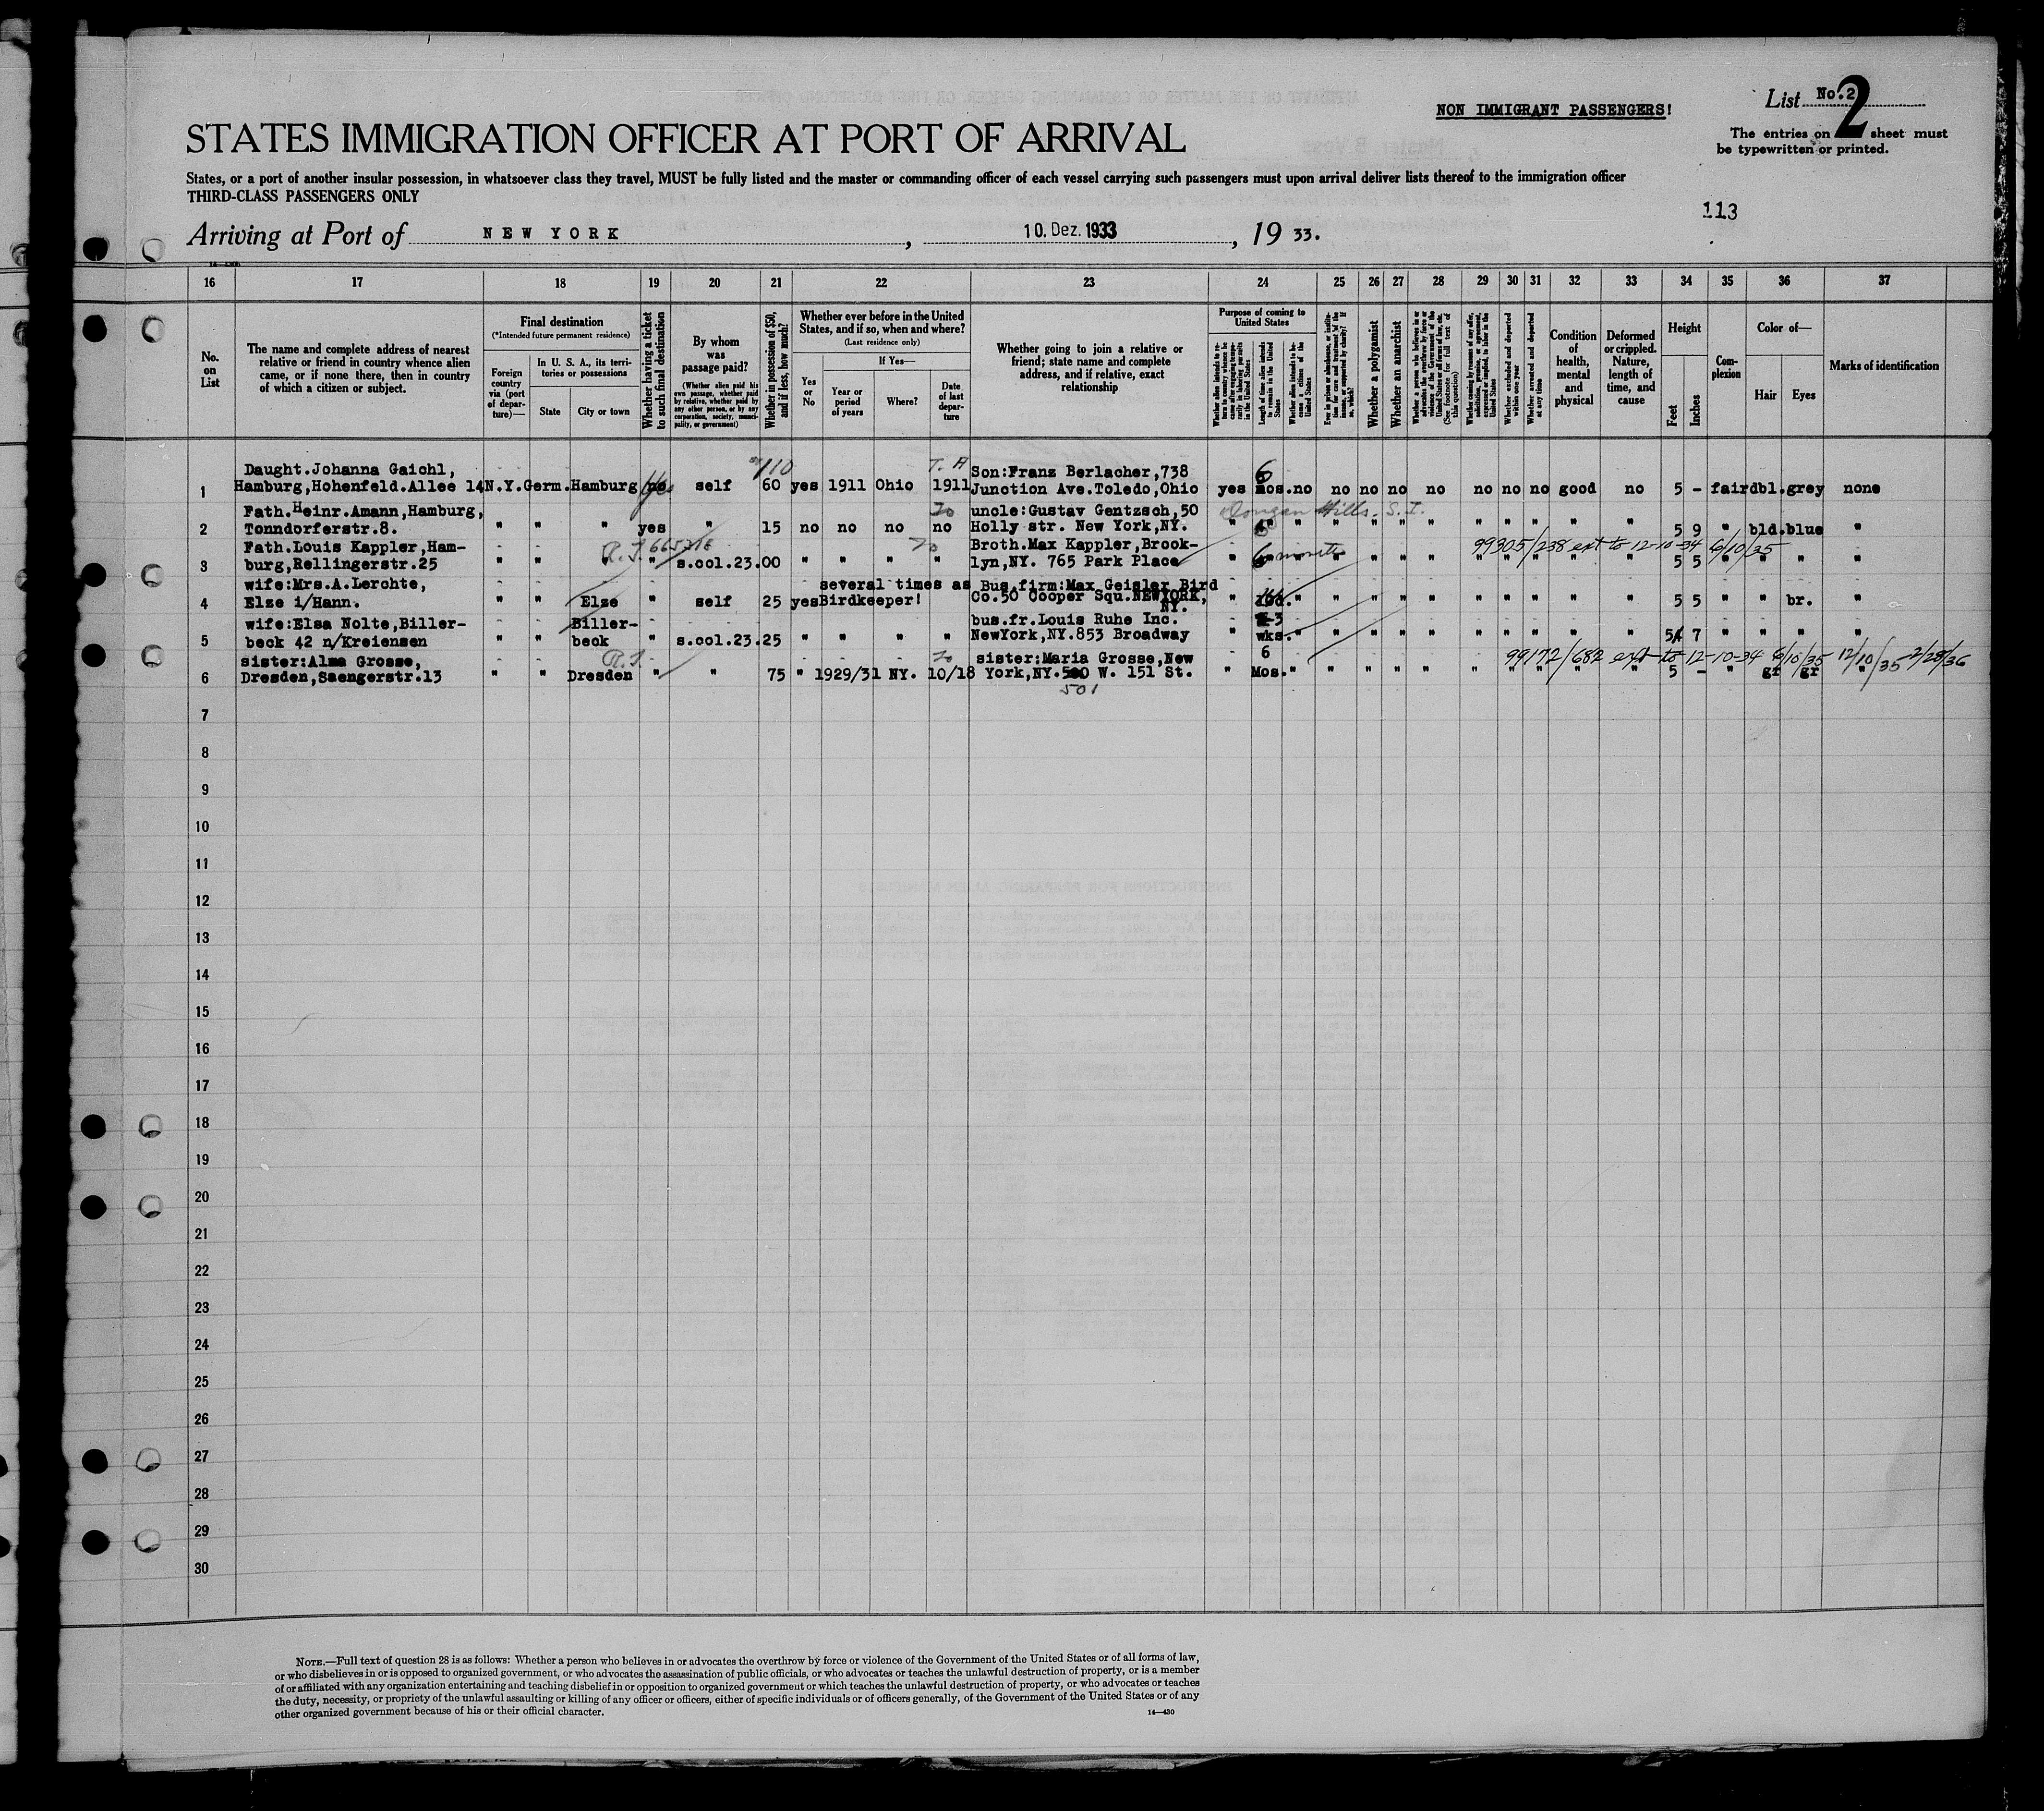 NON IMMIGRANT PASSENGERS!
List No. 2
2
STATES IMMIGRATION OFFICER AT PORT OF ARRIVAL
The entries on sheet must
be typewritten or printed.
States, or a port of another insular possession, in whatsoever class they travel, MUST be fully listed and the master or commanding officer of each vessel carrying such passengers must upon arrival deliver lists thereof to the immigration officer
THIRD-CLASS PASSENGERS ONLY
113
Arriving at Port of NEW YORK, 10. Dez. 1933, 19 33.
16 17 18 19 20 21 22 23 24 25 26 27 28 29 30 31 32 33 34 35 36 37
No. on List
The name and complete address of nearest relative or friend in country whence alien came, or if none there, then in country of which a citizen or subject.
Final destination
(*Intended future permanent residence)
Foreign country via (port of departure)—
In U. S. A., its territories or possessions
State
City or town
Whether having a ticket to such final destination
By whom was passage paid?
(Whether alien paid his own passage, whether paid by relative, whether paid by any other person, or by any corporation, society, municipality, or government)
Whether in possession of $50, and if less, how much?
Whether ever before in the United States, and if so, when and where?
(Last residence only)
Yes or No
If Yes—
Year or period of years
Where?
Date of last departure
Whether going to join a relative or friend; state name and complete address, and if relative, exact relationship
Purpose of coming to United States
Length of time alien intends to remain in the United States
Whether alien intends to become a citizen of the United States
Whether a polygamist
Whether an anarchist
(See footnote for full text of this question)
Whether excluded and deported within one year
Whether arrested and deported at any time
Condition of health, mental and physical
Deformed or crippled. Nature, length of time, and cause
Height
Feet
Inches
Complexion
Color of—
Hair
Eyes
Marks of identification
110
T. A
1 Daught.Johanna Gaichl,
Hamburg,Hohenfeld.Allee 14 N.Y. Germ. Hamburg no yes self 60 yes 1911 Ohio 1911 Son:Franz Berlacher,738
Junction Ave.Toledo,Ohio yes 6 mos. no no no no no no no no good no 5 - fair dbl. grey none
2 Fath.Heinr.Amann,Hamburg,
Tonndorferstr.8. " " " yes " 15 no no no no uncle:Gustav Gentzsch,50
Holly str. New York,NY. Dongan Hills. S.I. " 6 " " " " " " " " " " 5 9 " bld. blue "
3 Fath.Louis Kappler,Ham-
burg,Rellingerstr.25 " " " s.ool.23.00 " " " " Broth.Max Kappler,Brook-
lyn,NY. 765 Park Place " 6 months " " " " " " " " " 5 5 " " " "
99305/238 ext to 12-10-34 6/10/35
4 wife:Mrs.A.Lerchte,
Elze i/Hann. " " Elze " self 25 yes several times as
Birdkeeper! Bus.firm:Max Geisler Bird
Co.50 Cooper Squ.NEWYORK,
NY. " " " " " " " " " " " 5 5 " " br. "
5 wife:Elsa Nolte,Biller-
beck 42 n/Kreiensen " " Biller-
beck " s.ool.23.25 " " " " bus.fr. Louis Ruhe Inc.
NewYork,NY.853 Broadway " 3
wks. " " " " " " " " " " 5 7 " " " "
6 sister:Alma Grosse,
Dresden,Saengerstr.13 " " R.J. Dresden " " 75 " 1929/31 NY. 10/18 sister:Maria Grosse,New
York,NY.500 W. 151 St.
501
" 6
Mos. " " " " " " " " " " 5 - " gr gr "
99172/682 ext to 12-10-34 6/10/35 12/10/35 2/28/36
7
8
9
10
11
12
13
14
15
16
17
18
19
20
21
22
23
24
25
26
27
28
29
30
NOTE.—Full text of question 28 is as follows: Whether a person who believes in or advocates the overthrow by force or violence of the Government of the United States or of all forms of law,
or who disbelieves in or is opposed to organized government, or who advocates the assassination of public officials, or who advocates or teaches the unlawful destruction of property, or is a member
of or affiliated with any organization entertaining and teaching disbelief in or opposition to organized government or which teaches the unlawful destruction of property, or who advocates or teaches
the duty, necessity, or propriety of the unlawful assaulting or killing of any officer or officers, either of specific individuals or of officers generally, of the Government of the United States or of any
other organized government because of his or their official character.
14—430